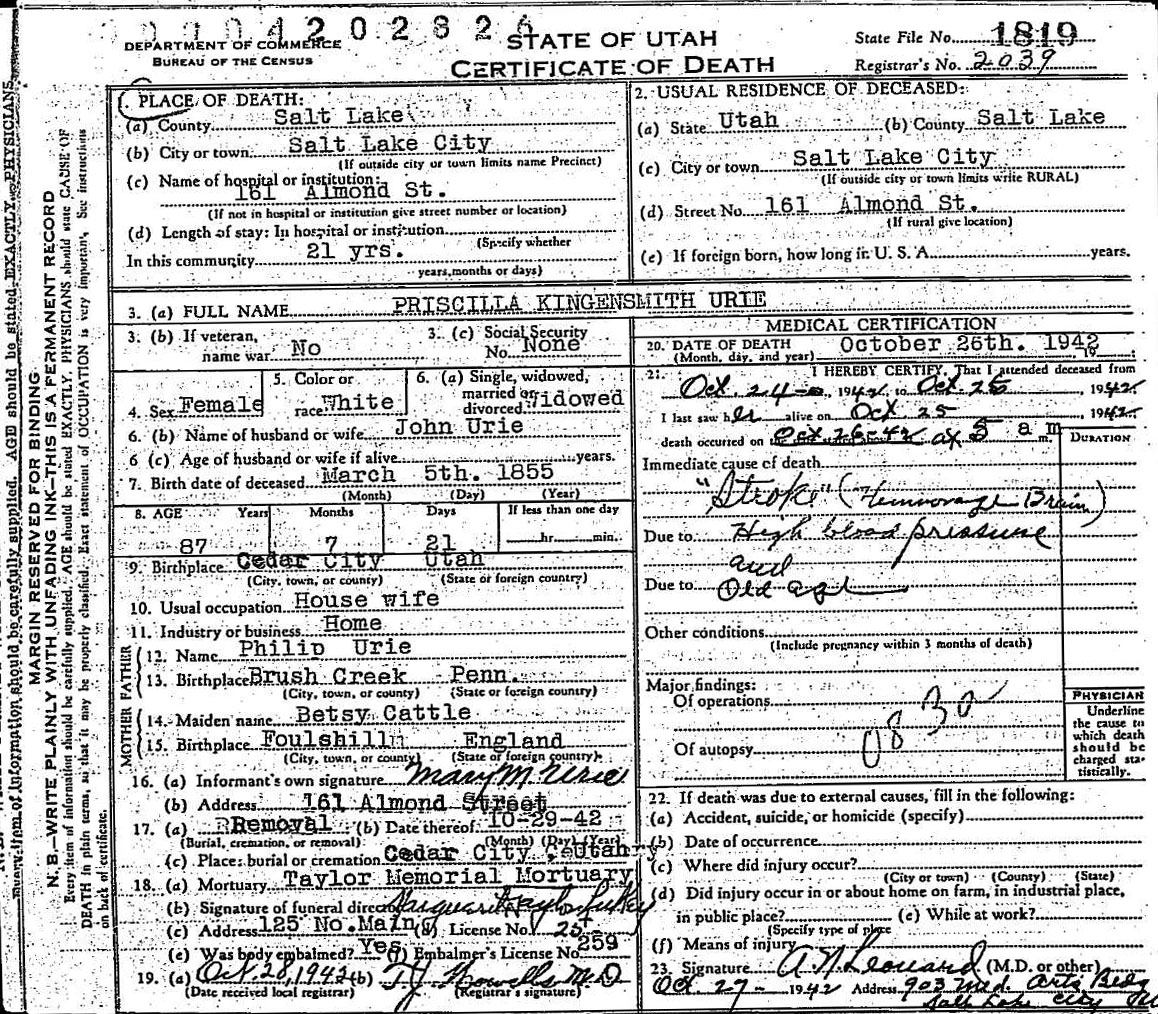 0004202826
DEPARTMENT OF COMMERCE
BUREAU OF THE CENSUS
STATE OF UTAH
CERTIFICATE OF DEATH
State File No. 1819
Registrar's No. 2039
1. PLACE OF DEATH:
(a) County Salt Lake
(b) City or town Salt Lake City
(If outside city or town limits name Precinct)
(c) Name of hospital or institution:
161 Almond St.
(If not in hospital or institution give street number or location)
(d) Length of stay: In hospital or institution
(Specify whether
In this community 21 yrs.
years, months or days)
2. USUAL RESIDENCE OF DECEASED:
(a) State Utah (b) County Salt Lake
(c) City or town Salt Lake City
(If outside city or town limits write RURAL)
(d) Street No. 161 Almond St.
(If rural give location)
(e) If foreign born, how long in U. S. A. years.
3. (a) FULL NAME PRISCILLA KINGENSMITH URIE
3. (b) If veteran, name war No
3. (c) Social Security No. None
4. Sex Female
5. Color or race White
6. (a) Single, widowed, married or divorced Widowed
6. (b) Name of husband or wife John Urie
6 (c) Age of husband or wife if alive years.
7. Birth date of deceased March 5th. 1855
(Month) (Day) (Year)
8. AGE Years Months Days If less than one day
87 7 21 hr. min.
9. Birthplace Cedar City Utah
(City, town, or county) (State or foreign country)
10. Usual occupation House wife
11. Industry or business Home
FATHER
12. Name Philip Urie
13. Birthplace Brush Creek Penn.
(City, town, or county) (State or foreign country)
MOTHER
14. Maiden name Betsy Cattle
15. Birthplace Foulshill England
(City, town, or county) (State or foreign country)
16. (a) Informant's own signature Mary M. Urie
(b) Address 161 Almond Street
17. (a) Removal (b) Date thereof 10-29-42
(Burial, cremation, or removal) (Month) (Day) (Year)
(c) Place: burial or cremation Cedar City Utah
18. (a) Mortuary Taylor Memorial Mortuary
(b) Signature of funeral director
(c) Address 125 No. Main License No. 25
(e) Was body embalmed? Yes (f) Embalmer's License No. 259
19. (a) Oct. 28, 1942 (b) T.J. Howells M.D
(Date received local registrar) (Registrar's signature)
MEDICAL CERTIFICATION
20. DATE OF DEATH October 26th. 1942
(Month, day, and year) 19
21. I HEREBY CERTIFY, That I attended deceased from
Oct. 24 1942, to Oct. 25, 1942
I last saw her alive on Oct 25, 1942
death occurred on Oct 26-42 at 5 a m
DURATION
Immediate cause of death
"Stroke" (Hemmorage Brain)
Due to High blood pressure
and
Due to Old age
Other conditions
(Include pregnancy within 3 months of death)
Major findings:
Of operations
083
Of autopsy
PHYSICIAN
Underline
the cause to
which death
should be
charged sta-
tistically.
22. If death was due to external causes, fill in the following:
(a) Accident, suicide, or homicide (specify)
(b) Date of occurrence
(c) Where did injury occur?
(City or town) (County) (State)
(d) Did injury occur in or about home on farm, in industrial place,
in public place? (e) While at work?
(Specify type of place
(f) Means of injury
23. Signature A N Leonard (M.D. or other)
Oct. 27- 1942 Address 903 Med. Arts Bldg
Salt Lake City
MARGIN RESERVED FOR BINDING
N. B.—WRITE PLAINLY WITH UNFADING INK—THIS IS A PERMANENT RECORD
Every item of information should be carefully supplied. AGE should be stated EXACTLY. PHYSICIANS should state CAUSE OF
DEATH in plain terms, so that it may be properly classified. Exact statement of OCCUPATION is very important. See instructions
on back of certificate.
Every item of information should be carefully supplied. AGE should be stated EXACTLY. PHYSICIANS